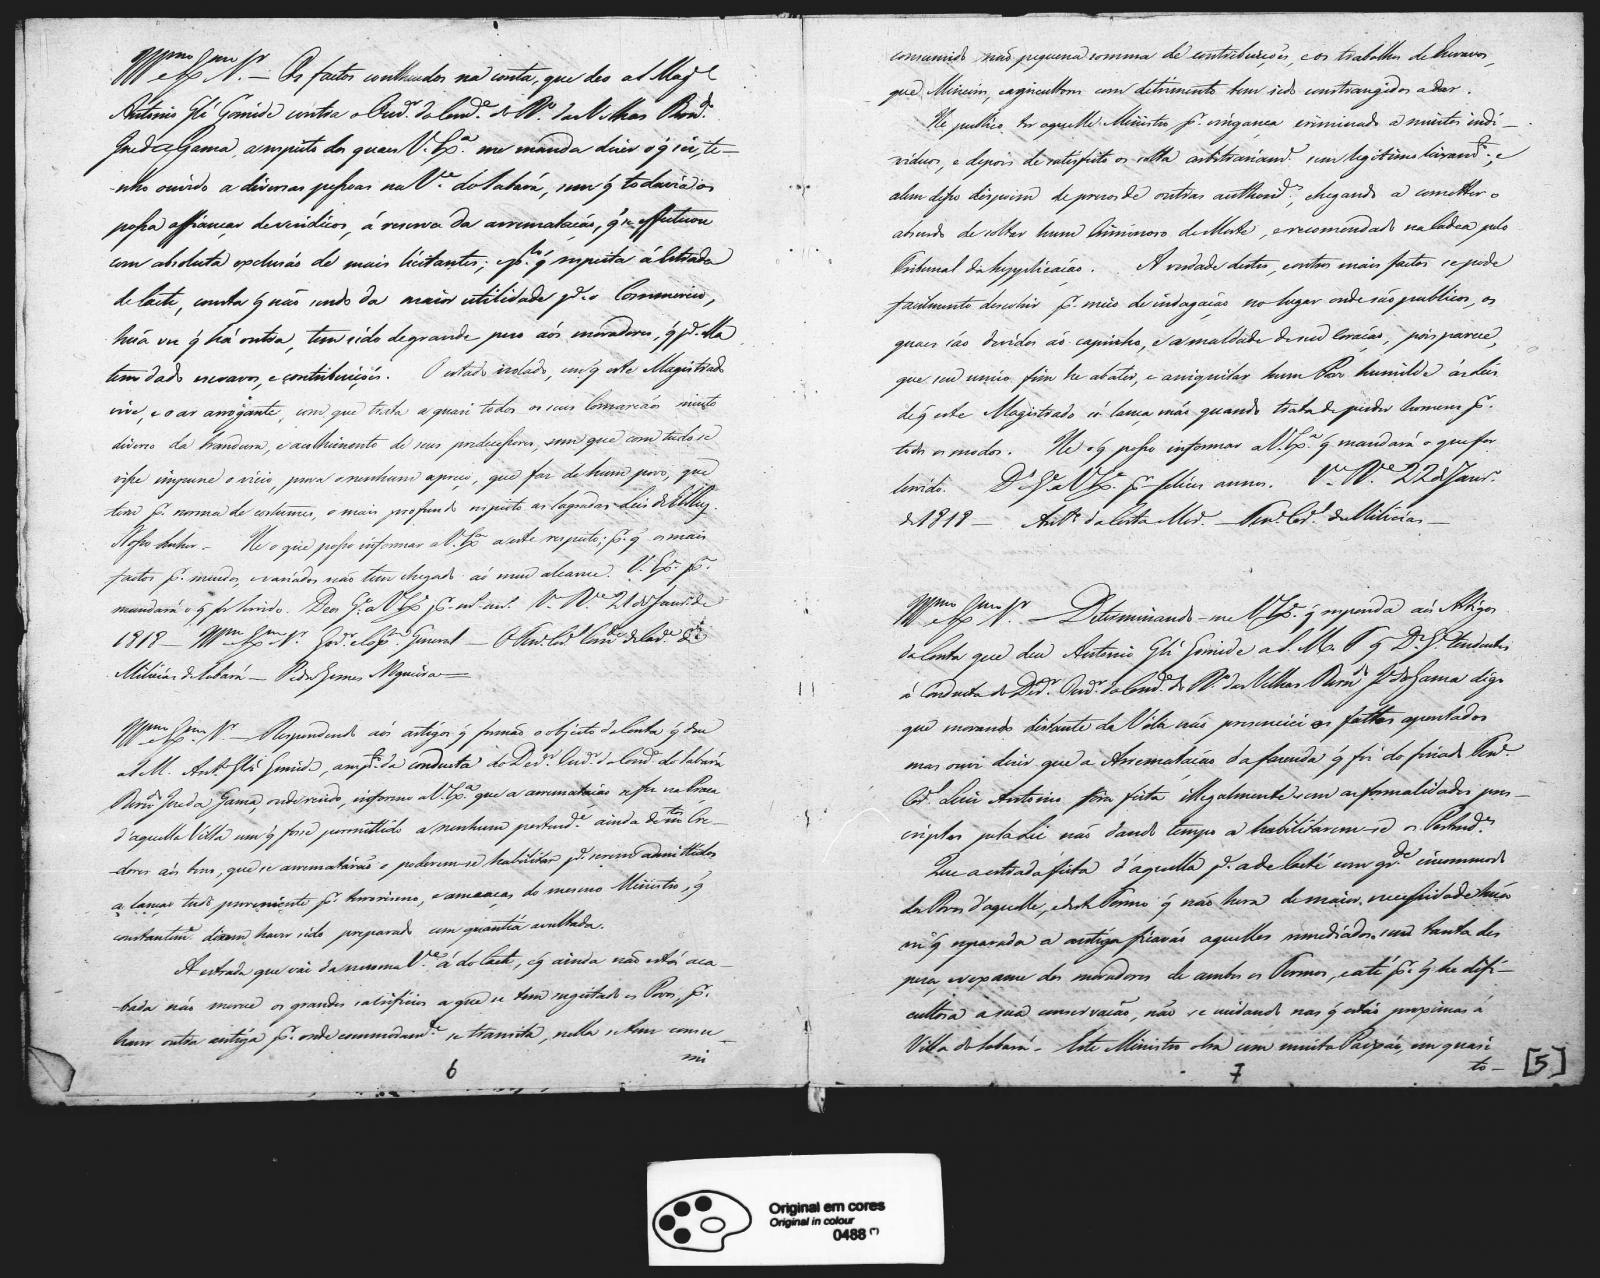 Illmo Exmo Sr. — Os factos contheudos na conta, que deo a S. Mag.e
Antonio Glz Gomide contra o Ouv.or da Com.ca do R.o das Velhas Bern.do
Jozé da Gama, a respeito dos quaes V. Ex.a me manda dizer o q sei, te-
nho ouvido a diversas pessoas na V.a do Sabará, sem q todavia os
possa affiançar de veridicos, á reserva da arrematação, q se effectuou
com absoluta exclusão de mais licitantes; e p.lo q respeita á Estrada
de Caeté, consta q não sendo da maior utilidade p.a o Commercio,
húa vez q há outra, tem sido de grande pezo aos moradores, q p.a ella
tem dado escravos, e contribuiçoés. O estado izolado, em q este Magistrado
vive, e o ar arrogante, com que trata a quasi todos os seus Comarcãos muito
diverso da brandura, e acolhimento de seus predecessores, sem que com tudo se
visse impune o vicio, prova o nenhum apreço, que faz de hum povo, que
tem p.r norma de costumes, o mais profundo respeito as sagradas Leis de ElRey
Nosso Senhor. — He o que posso informar a V. Ex.a a este respeito; p.r q os mais
factos p.r miudos, e variados não tem chegado ao meu alcance. V. Ex.a p.r
mandará o q for servido. Deos G.e a V. Ex.a p.r m.s an.s V.a R.ca 21 de Janr.o de
1818 — Illmo Exmo Sr. Gov.or e Cap.m General — O Ten.e Cor.el Com.de da Cav.a de
Milicias de Sabará — Pedro Gomes Nogueira —
Illmo Exmo Sr. — Respondendo aos artigos q formão o objecto da Conta q deu
a S. M. Ant.o Glz Gomide, a resp.to da conducta do D.or Ouv.or da Com.ca do Sabará
Bern.do Jozé da Gama, informo a V. Ex.a que a arrematação se fez na Praça
d'aquella Villa sem q fosse permittido a nenhum pertend.e ainda dos Cre-
dores aos bens, que se arrematárão o poderem-se habilitar p.a serem admittidos
a lançar tudo proveniente p.r terrorismo, e ameaças do mesmo Ministro, q
constantem.e dizem haver sido preparado com quantia avultada.
A estrada que vai da mesma V.a á do Caeté, e q ainda não está aca-
-bada não merece os grandes sacrificios a que se tem sugeitado os Povos, p.r
haver outra antiga p.r onde commodam.e se transita, nella se tem consu-
mi
6
consumido não pequena somma de contribuiçoés, e os trabalhos de Escravos,
que Mineiros, e agricultores com detrimento tem sido constrangidos a dar.
He publico ter aquelle Ministro p.r vingança criminado a muitos indi-
viduos, e depois de satisfeito os solta arbitrariam.e sem legitimo livram.to, e
alem disso dispoem de prezos de outras authorid.s, chegando a cometter o
absurdo de soltar hum Criminoso de Morte, e recomendado na Cadea pelo
Tribunal da Supplicação. A verdade destes, e outros mais factos se pode
facilmente descobrir p.r meio de indagação no lugar onde são publicos, os
quaes são devidos ao capricho, e a maldade do seu Coração, pois parece,
que seu unico fim he abater, e aniquilar hum Povo humilde ás Leis
de q este Magistrado só lança mão quando trata de perder homens p.r
todos os modos. He o q posso informar a V. Ex.a q mandará o que for
servido. D.s G.e a V. Ex.a p.r felices annos. V.a R.ca 22 de Janr.o
de 1818 — Ant.o da Costa — Ten.e Cor.el de Milicias —
Illmo Exmo Sr. — Determinando-me V. Ex.a q responda aos Artigos
da Conta que deu Antonio Glz Gomide a S. M. F. q D.s G.e tendentes
á Conducta do D.or Ouv.or da Com.ca do R.o das Velhas Bern.do Jz.e da Gama digo
que morando distante da Villa não presenciei os fattos apontados
mas ouvi dizer que a Arrematação da fazenda q foi do finado Ten.e
Cor.el Luiz Antonio fôra feita illegalmente sem as formalidades pres-
criptas pela Lei não dando tempo a habilitarem-se os Pertend.es
Que a estrada feita d'aquella p.a a de Caeté com gr.de incommodo
dos Povos d'aquelle, e deste Termo q não hera de maior necessidade húa
vez q reparada a antiga ficavão aquelles remediados sem tanta des
peza, e vexame dos moradores de ambos os Termos, e até p.r q he difi-
cultosa a sua conservação, não se cuidando nas q estão proximas á
Villa do Sabará. Este Ministro obra com muita Paixão, em quasi
to-
7
[5]
Original em cores
Original in colour
0488 (*)